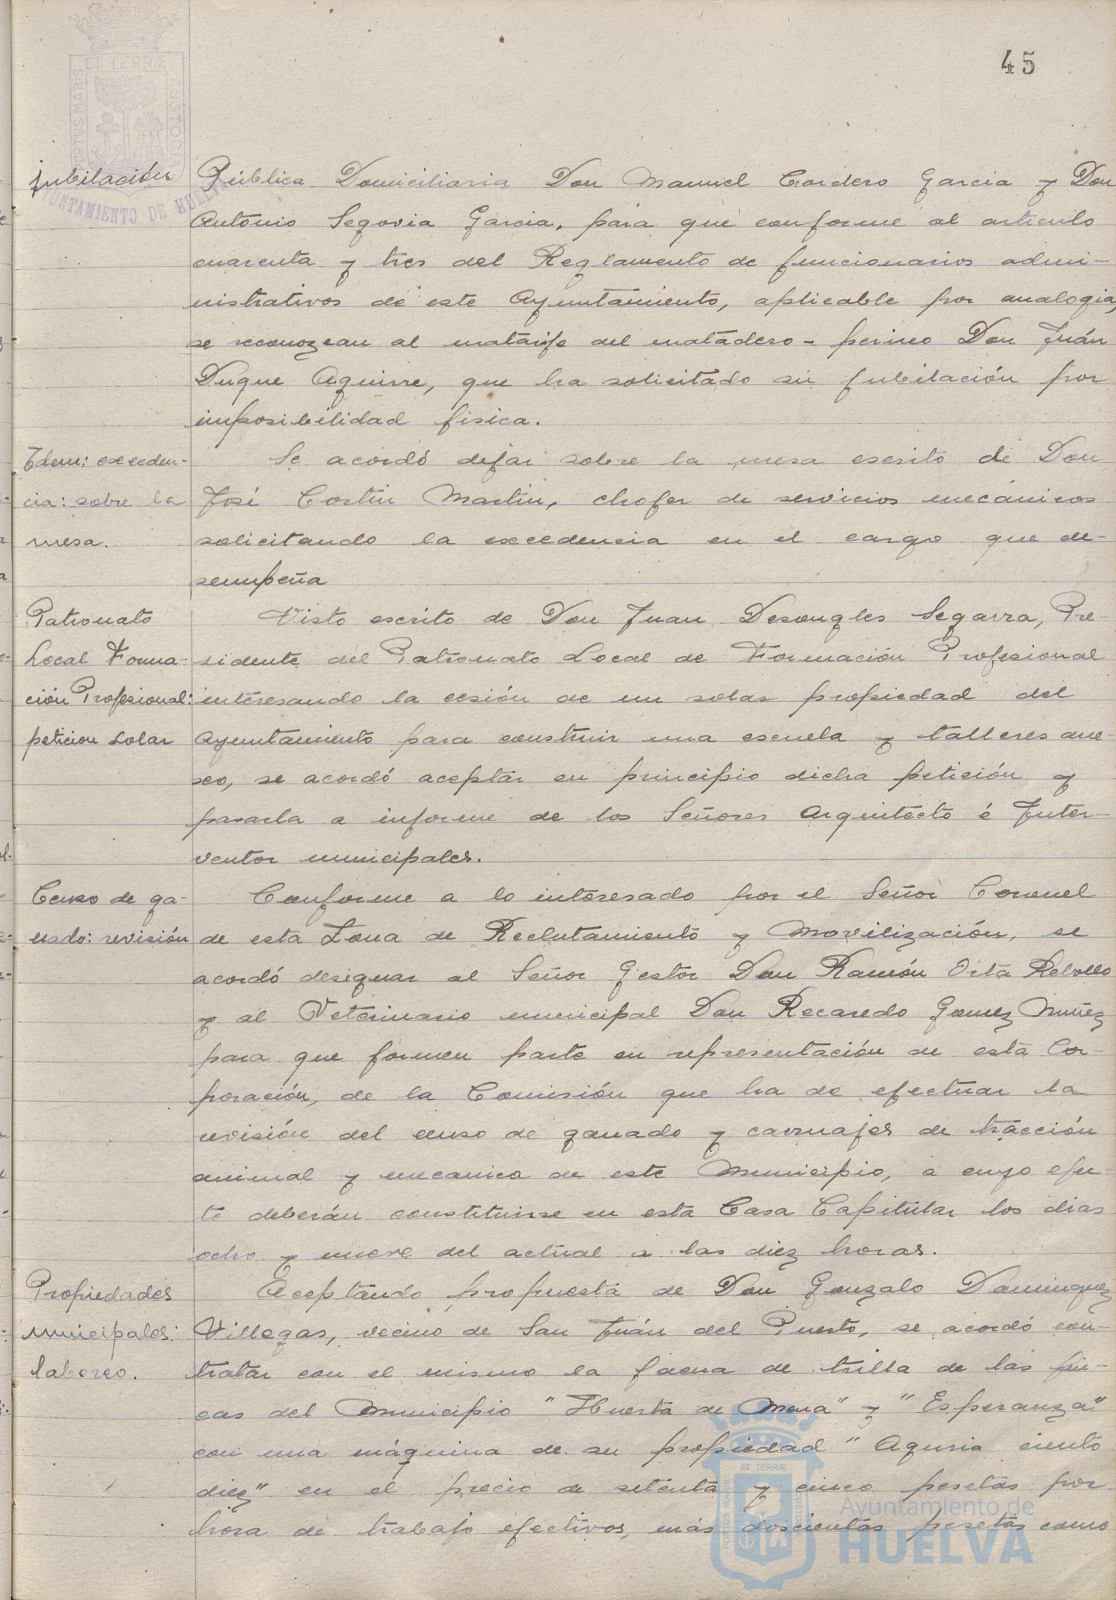 45
jubilación
Pública Domiciliaria Don Manuel Cordero Garcia y Don
Antonio Segovia Garcia, para que conforme al articulo
cuarenta y tres del Reglamento de funcionarios admi-
nistrativos de este Ayuntamiento, aplicable por analogia,
se reconozcan al matarife del matadero-perineo Don Juán
Duque Aguirre, que ha solicitado su jubilación por
imposibilidad fisica.
Idem: exceden-
cia: sobre la
mesa.
Se acordó dejar sobre la mesa escrito de Don
José Costin Martin, chofer de servicios mecánicos
solicitando la excedencia en el cargo que de-
sempeña
Patronato
Local Forma-
ción Profesional:
peticion solar
Visto escrito de Don Juan Desongles Segarra, Pre-
sidente del Patronato Local de Formación Profesional
interesando la cesión de un solar propiedad del
Ayuntamiento para construir una escuela y talleres ane-
xo, se acordó aceptar en principio dicha petición y
pasarla a informe de los Señores Arquitecto é Inter-
ventor municipales.
Censo de ga-
nado: revisión
Conforme a lo interesado por el Señor Coronel
de esta Zona de Reclutamiento y Movilización, se
acordó designar al Señor Gestor Don Ramón Orta Rebollo
y al Veterinario municipal Don Recaredo Gomez Nuñez
para que formen parte en representación de esta Cor-
poración, de la Comisión que ha de efectuar la
revisión del censo de ganado y carruajes de tracción
animal y mecanica de este Municipio, a cuyo efec-
to deberán constituirse en esta Casa Capitular los dias
ocho y nueve del actual a las diez horas.
Propiedades
municipales:
laboreo.
Aceptando propuesta de Don Gonzalo Dominguez
Villegas, vecino de San Juán del Puerto, se acordó con-
tratar con el mismo la faena de trilla de las fin-
cas del Municipio "Huerta de Mena" y "Esperanza"
con una máquina de su propiedad "Agusia ciento
diez" en el precio de setenta y cinco pesetas por
hora de trabajo efectivos, más doscientas pesetas como
Ayuntamiento de
HUELVA